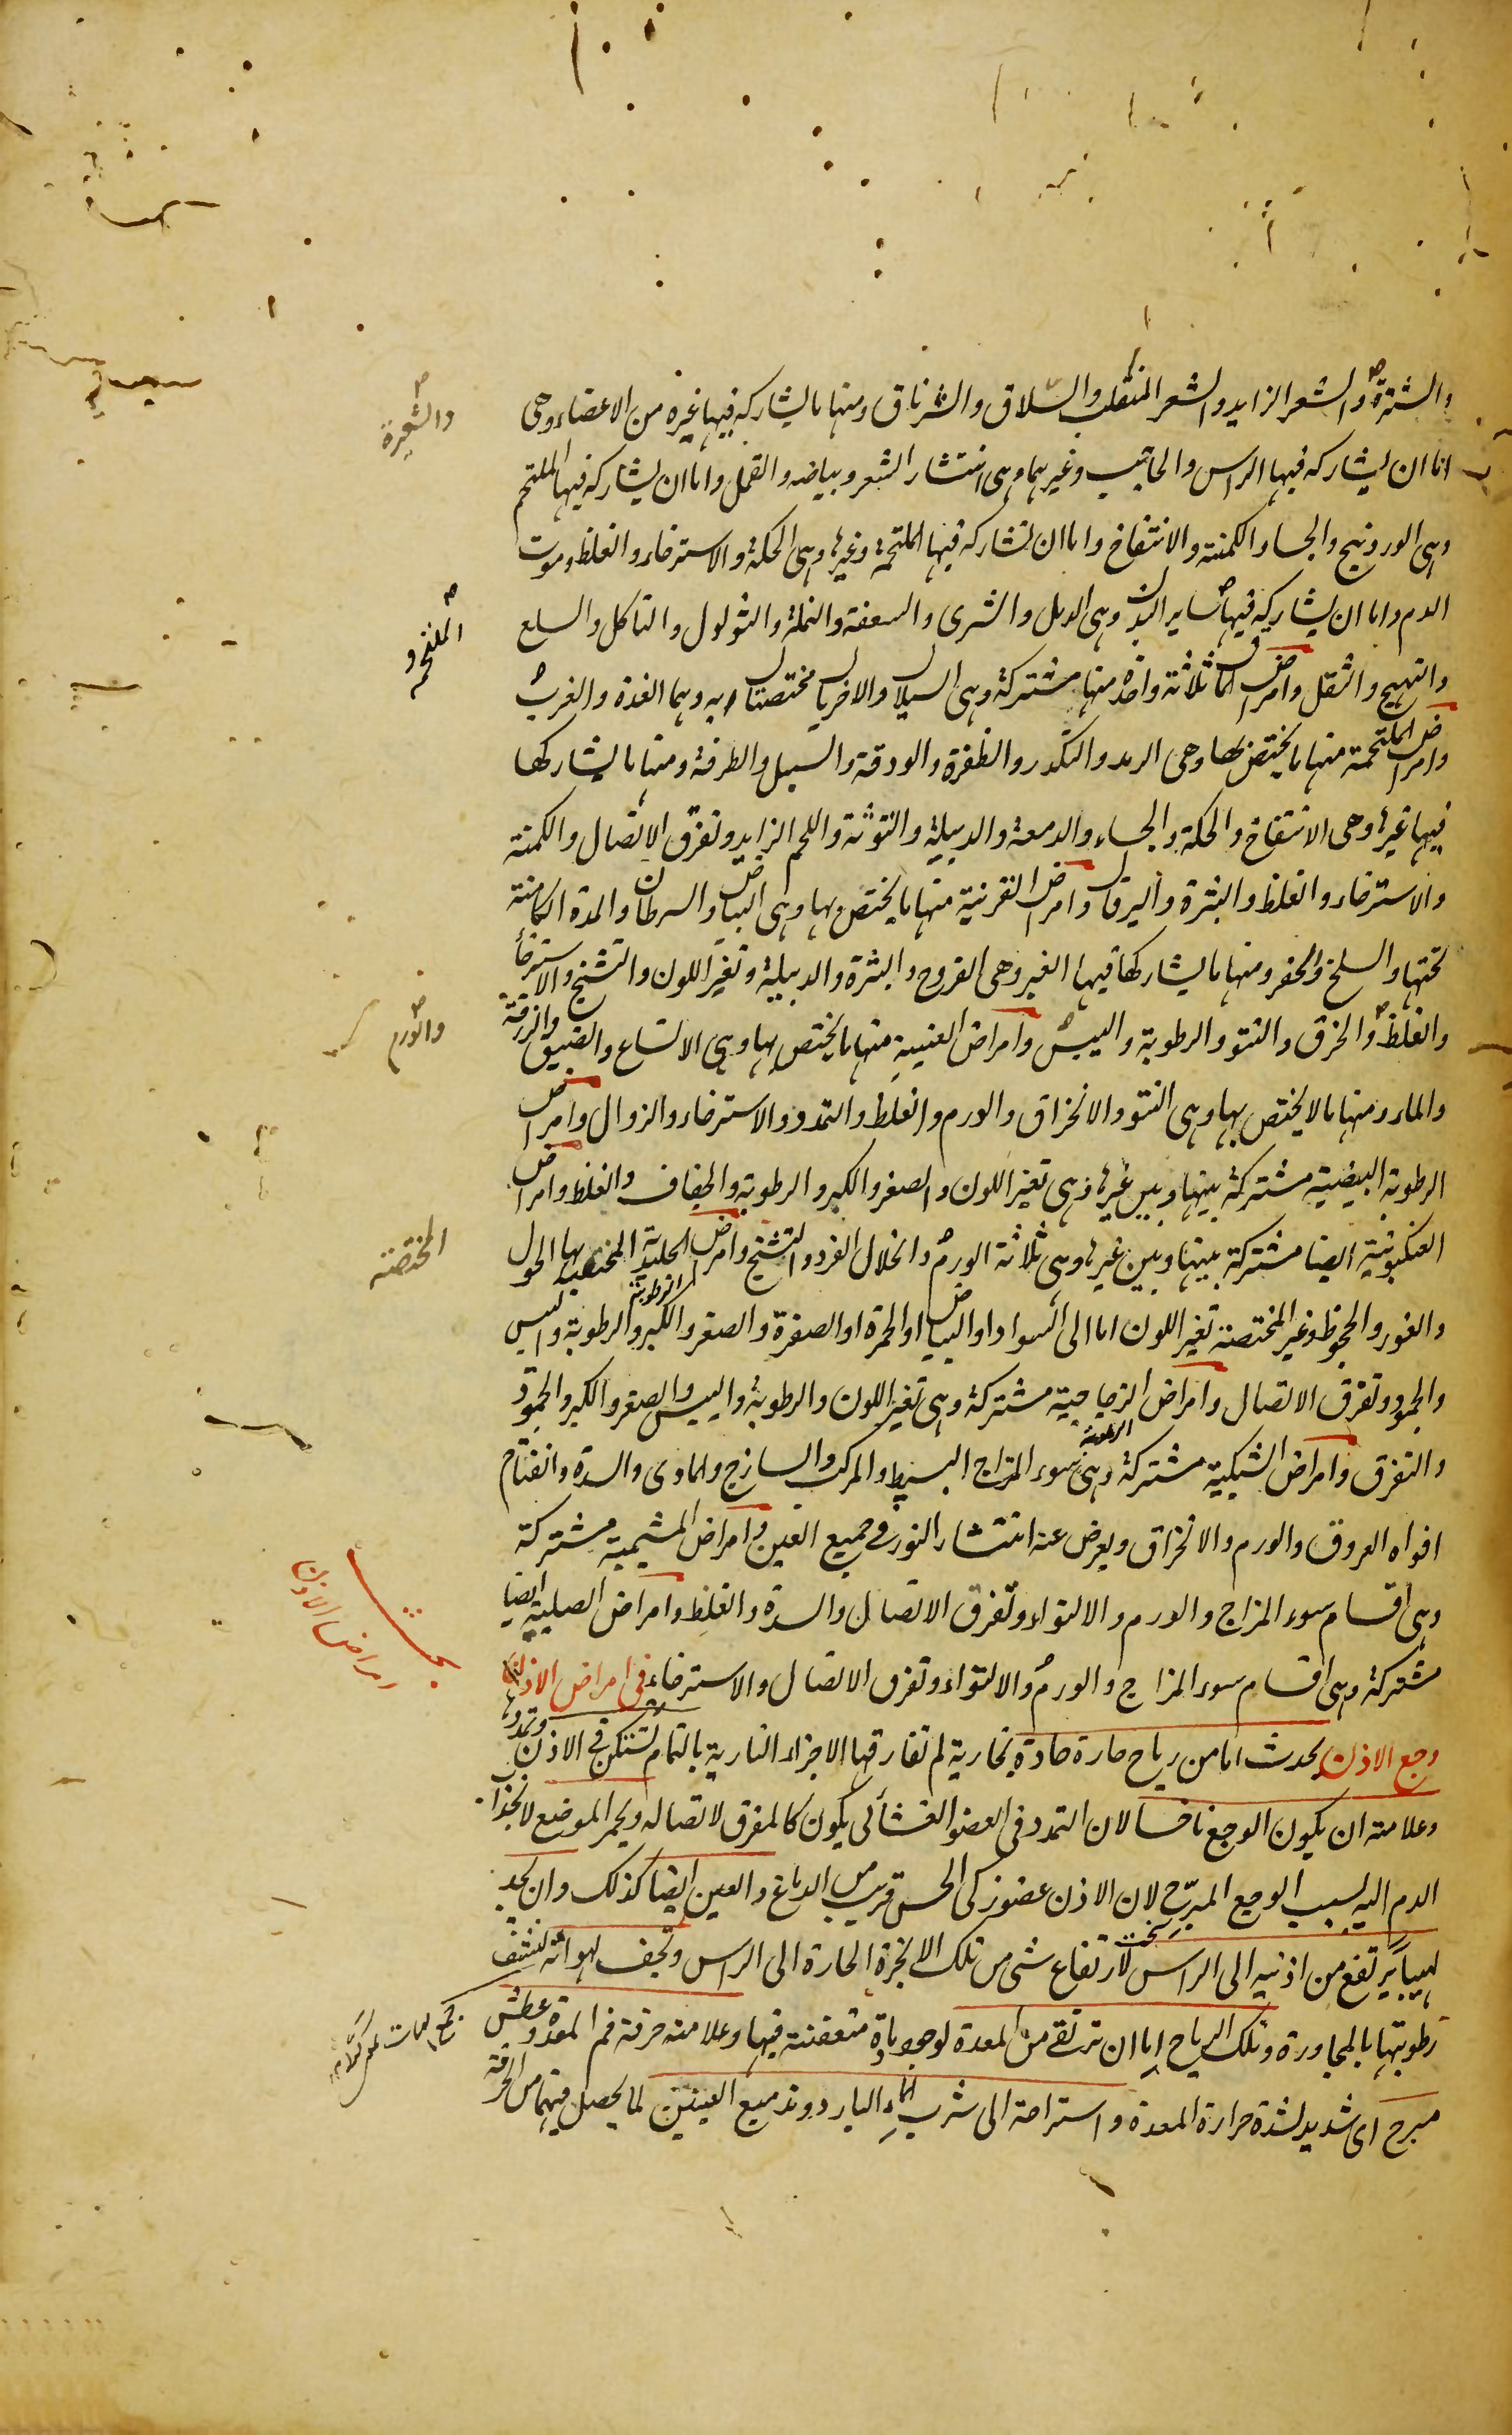 والشترة والشعر الزايد والشعر المنقلب والسلاق والشرناق ومنها ما يشاركه فيها غيره من الاعضاء وهى
اما ان يشاركه فيها الراس والحاجب وغيرهما وهى انتشار الشعر وبياضه والقمل واما ان يشاركه فيها الملتحم
وهى الوردينج والجساء والكمنة والانتفاخ واما ان تشاركه فيها الملتحمة وغيرها وهى الحكة والاسترخاء والغلظ وموت
الدم واما ان يشاركه فيها ساير البدن وهى الدمل والشرى والسعفة والنملة والثولول والتاكل والسلع
والتهيج والثقل وامراض الماق ثلاثة واحدة منها مشتركة وهى السيلان والاخريان مختصتان به وهما الغدة والغرب
وامراض الملتحمة منها ما يختص بها وهى الرمد والتكدر والظفرة والودقة والسبل والطرفة ومنها ما يشاركها
فيها غيرها وهى الانتفاخ والحكة والجساء والدمعة والدبيلة والتوثة واللحم الزايد وتفرق الاتصال والكمنة
والاسترخاء والغلظ والبثرة واليرقان وامراض القرنية منها ما يختص بها وهى البياض والسرطان والمدة الكامنة
تحتها والسلخ والحفر ومنها ما يشاركها فيها الغير وهى القروح والبثرة والدبيلة وتغير اللون والتشنج والاسترخاء
والغلظ والخرق والنتو والرطوبة واليبس وامراض العنبية منها ما يختص بها وهى الاتساع والضيق والزرقة
والماء ومنها ما لا يختص بها وهى النتو والانخراق والورم والغلظ والتمدد والاسترخاء والزوال وامراض
الرطوبة البيضية مشتركة بينها وبين غيرها وهى تغير اللون والصغر والكبر والرطوبة والجفاف والغلظ وامراض
العنكبوتية ايضا مشتركة بينها وبين غيرها وهى ثلاثة الورم وانحلال الفرد والتشنج وامراض الرطوبة الجليدية المختصة بها الحول
والغور والجحوظ وغير المختصة تغير اللون اما الى السواد او البياض او الحمرة او الصفرة والصغر والكبر والرطوبة واليبس
والجمود وتفرق الاتصال وامراض الزجاجية مشتركة وهى تغير اللون والرطوبة واليبس والصغر والكبر والجمود
والتفرق وامراض الشبكية مشتركة وهى سوء المزاج البسيط والمركب والساذج والمادى والسدة وانفتاح
افواه العروق والورم والانخراق ويعرض عنه انتشار النور فى جميع العين وامراض المشيمية مشتركة
وهى اقسام سوء المزاج والورم والالتواء وتفرق الاتصال والسدة والغلظ وامراض الصلبية ايضا
مشتركة وهى اقسام سوء المزاج والورم والالتواء وتفرق الاتصال والاسترخاء فى امراض الاذن
وجع الاذن يحدث اما من رياح حارة حادة بخارية لم تفارقها الاجزاء النارية بالتمام تستكن فى الاذن وتمددها
وعلامته ان يكون الوجع ناخسا لان التمدد فى العضو الغشائى يكون كالمفرق لاتصاله ويحمر الموضع لانجذاب
الدم اليه بسبب الوجع المبرح لان الاذن عضو زكى الحس قريب من الدماغ والعين ايضا كذلك وان يجد
لهيبا يرتفع من اذنيه الى الراس لارتفاع شى من تلك الابخرة الحارة الى الراس وتجف لهواته لنشف
رطوبتها بالمجاورة وتلك الرياح اما ان ترتقى من المعدة لوجود مادة متعفنة فيها وعلامته حرقة فم المعدة وعطش
مبرح اى شديد لشدة حرارة المعدة واستراحة الى شرب الماء البارد وتدميع العينين لما يحصل فيهما من الحرقة
والشعيرة
الملتحمة و
والورم
المختصة
بحث
امراض الاذن